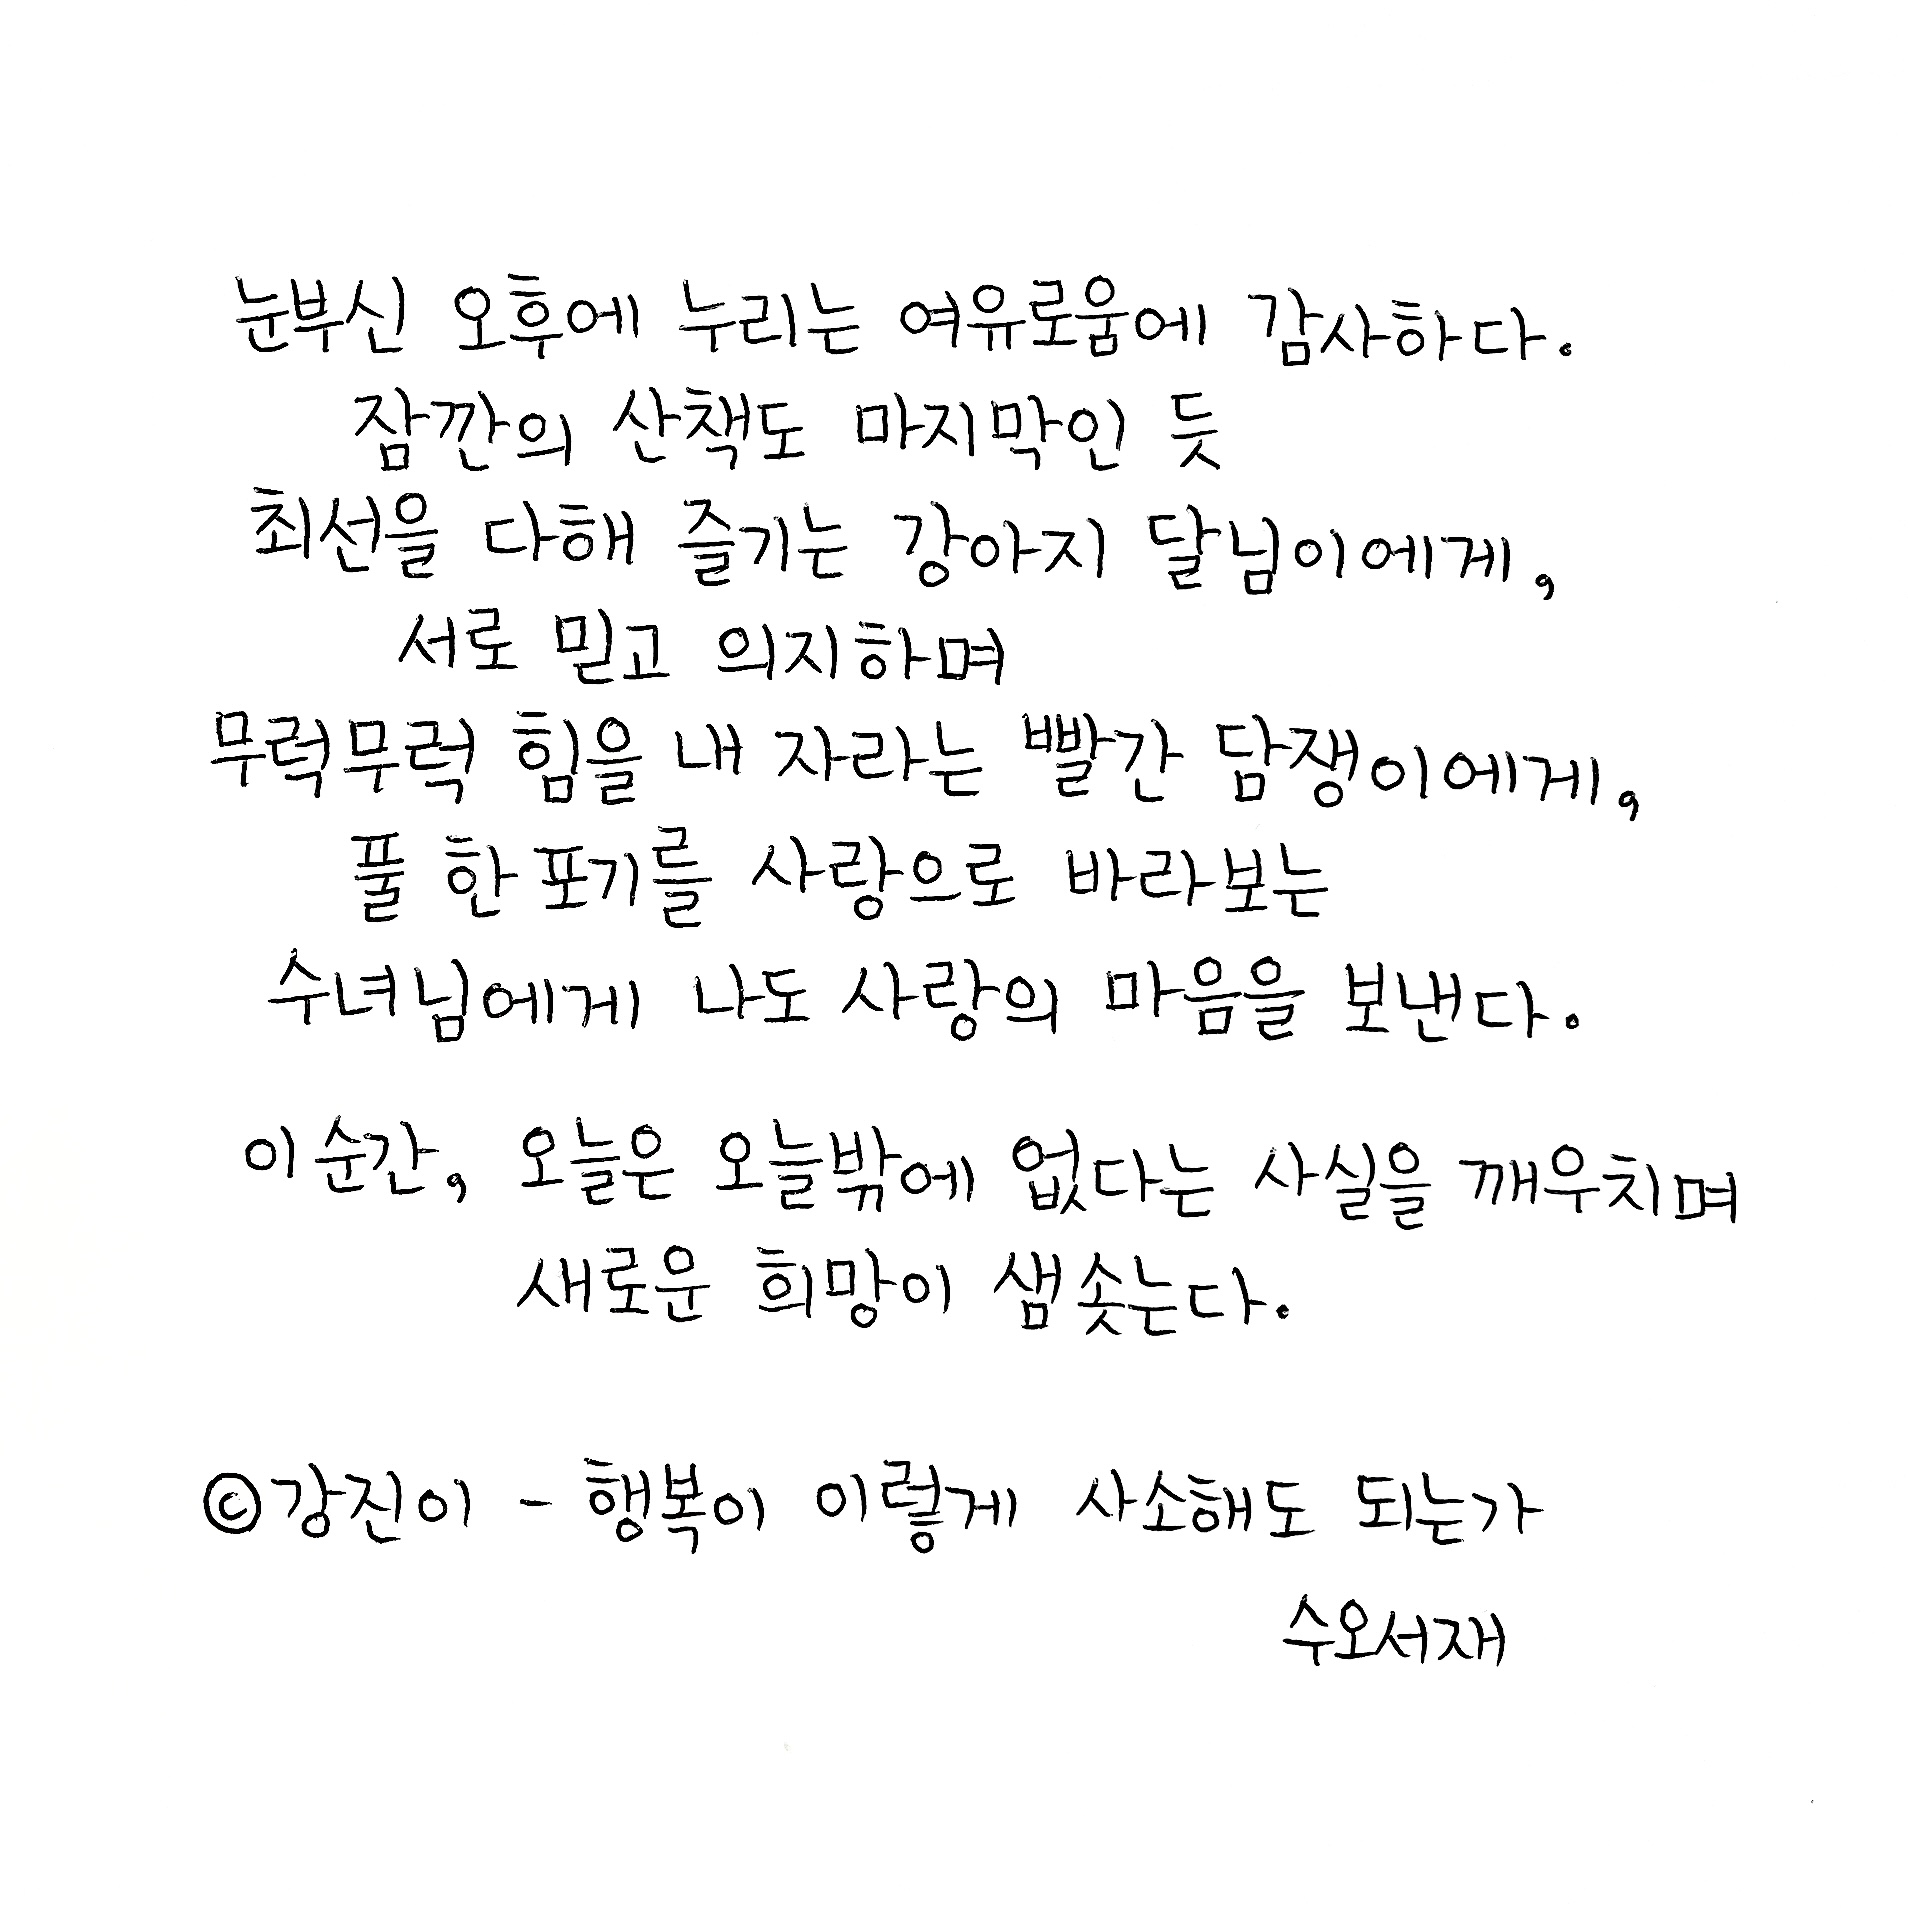 눈부신 오후에 누리는 여유로움에 감사하다.
잠깐의 산책도 마지막인 듯
최선을 다해 즐기는 강아지 달님이에게,
서로 믿고 의지하며
무럭무럭 힘을 내 자라는 빨간 담쟁이에게,
풀 한 포기를 사랑으로 바라보는
수녀님에게 나도 사랑의 마음을 보낸다.
이 순간, 오늘은 오늘밖에 없다는 사실을 깨우치며
새로운 희망이 샘솟는다.
©강진이 - 행복이 이렇게 사소해도 되는가
수오서재